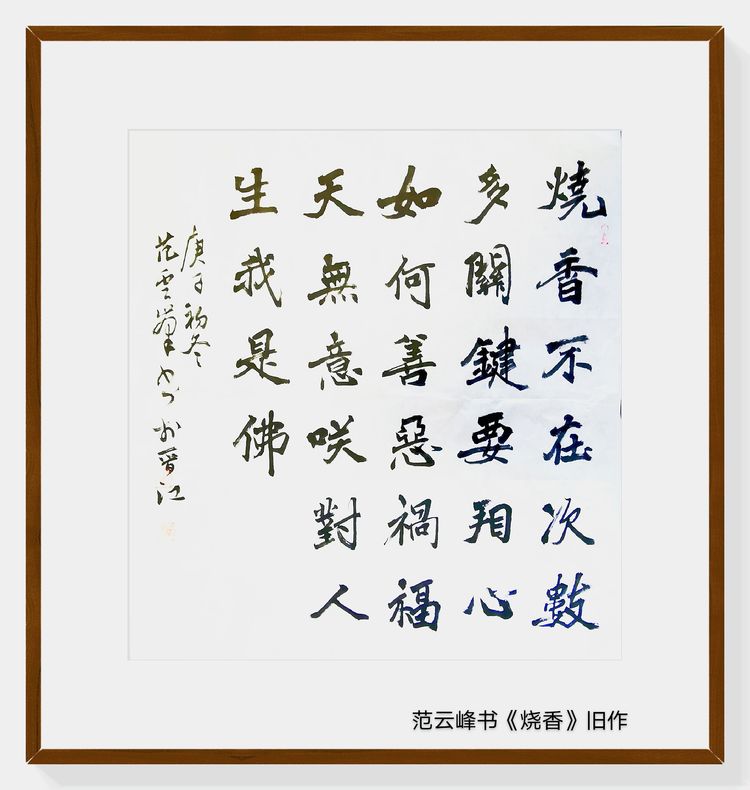 燒香不在次數
多關鍵要眀心
如何善惡禍福
天無意咲對人
生我是佛
庚子初冬
范雲峯书於晉江
范云峰书《烧香》旧作